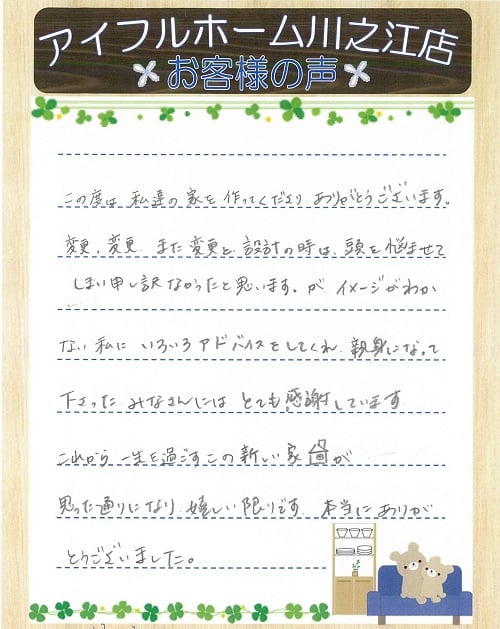 アイフルホーム川之江店
お客様の声
この度は 私達の家を作ってくださり ありがとうございます。
変更、変更 また変更と 設計の時は、頭を悩ませて
しまい申し訳なかったと思います。が イメージがわか
ない私に いろいろアドバイスをしてくれ 親身になって
下さった みなさんには とても感謝しています
これから 一生を過ごすこの新しい家が
思った通りになり 嬉しい限りです 本当にありが
とうございました。